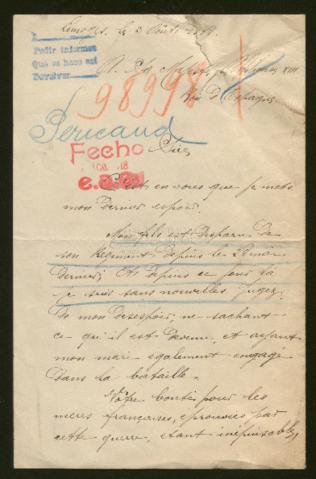 Limoges, le 3 Août
Pedir informes
Que se hace así
Devolver
A Sa Majesté Alphonse XIII
Roi D'Espagne
Pericaud
Fecho
Sire,
C'est en vous que je mets
mon dernier espoir.
Mon fils est Disparu De
son Régiment Depuis le
Dernier, Et Depuis ce jour là
je suis sans nouvelles, jugez
De mon Désespoir, ne sachant
ce qu'il est Devenu, et ayant
mon mari également engagé
Dans la bataille.
Votre bonté pour les
mères françaises, éprouvées par
cette guerre, étant inépuisable,